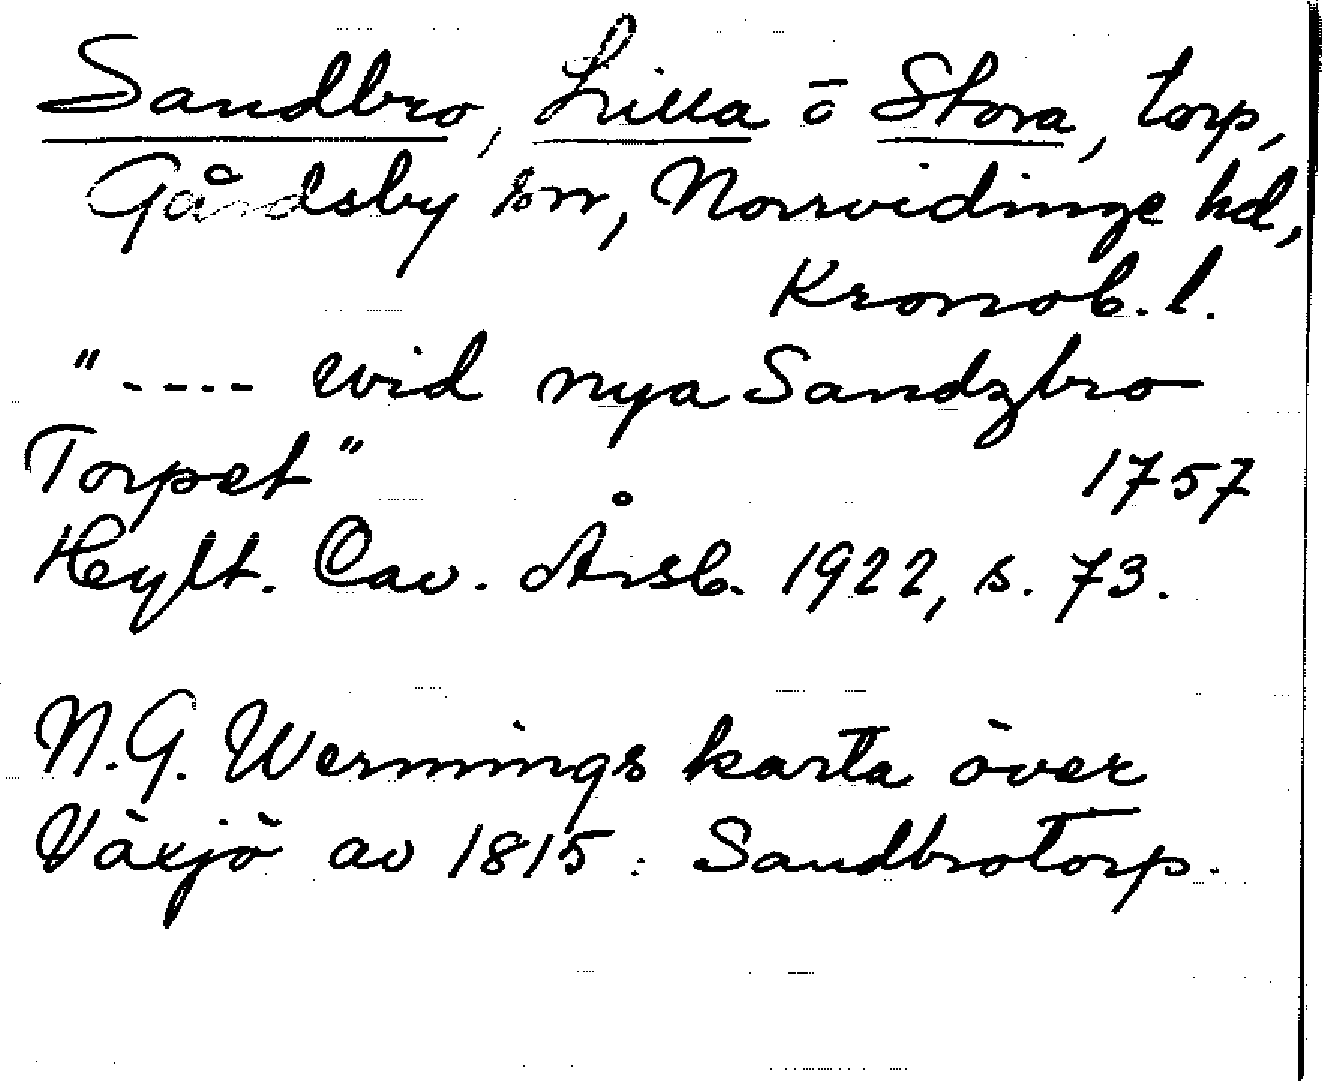 Sandbro, Lilla o Stora, torp,
Gårdsby sn, Norrvidinge hd,
Kronob. l.
"---- wid nya Sandzbro
Torpet" 1757
Heylt. Cav. Årsb. 1922, s. 73.
N.G. Wernings karta över
Växjö av 1815: Sandbrotorp.